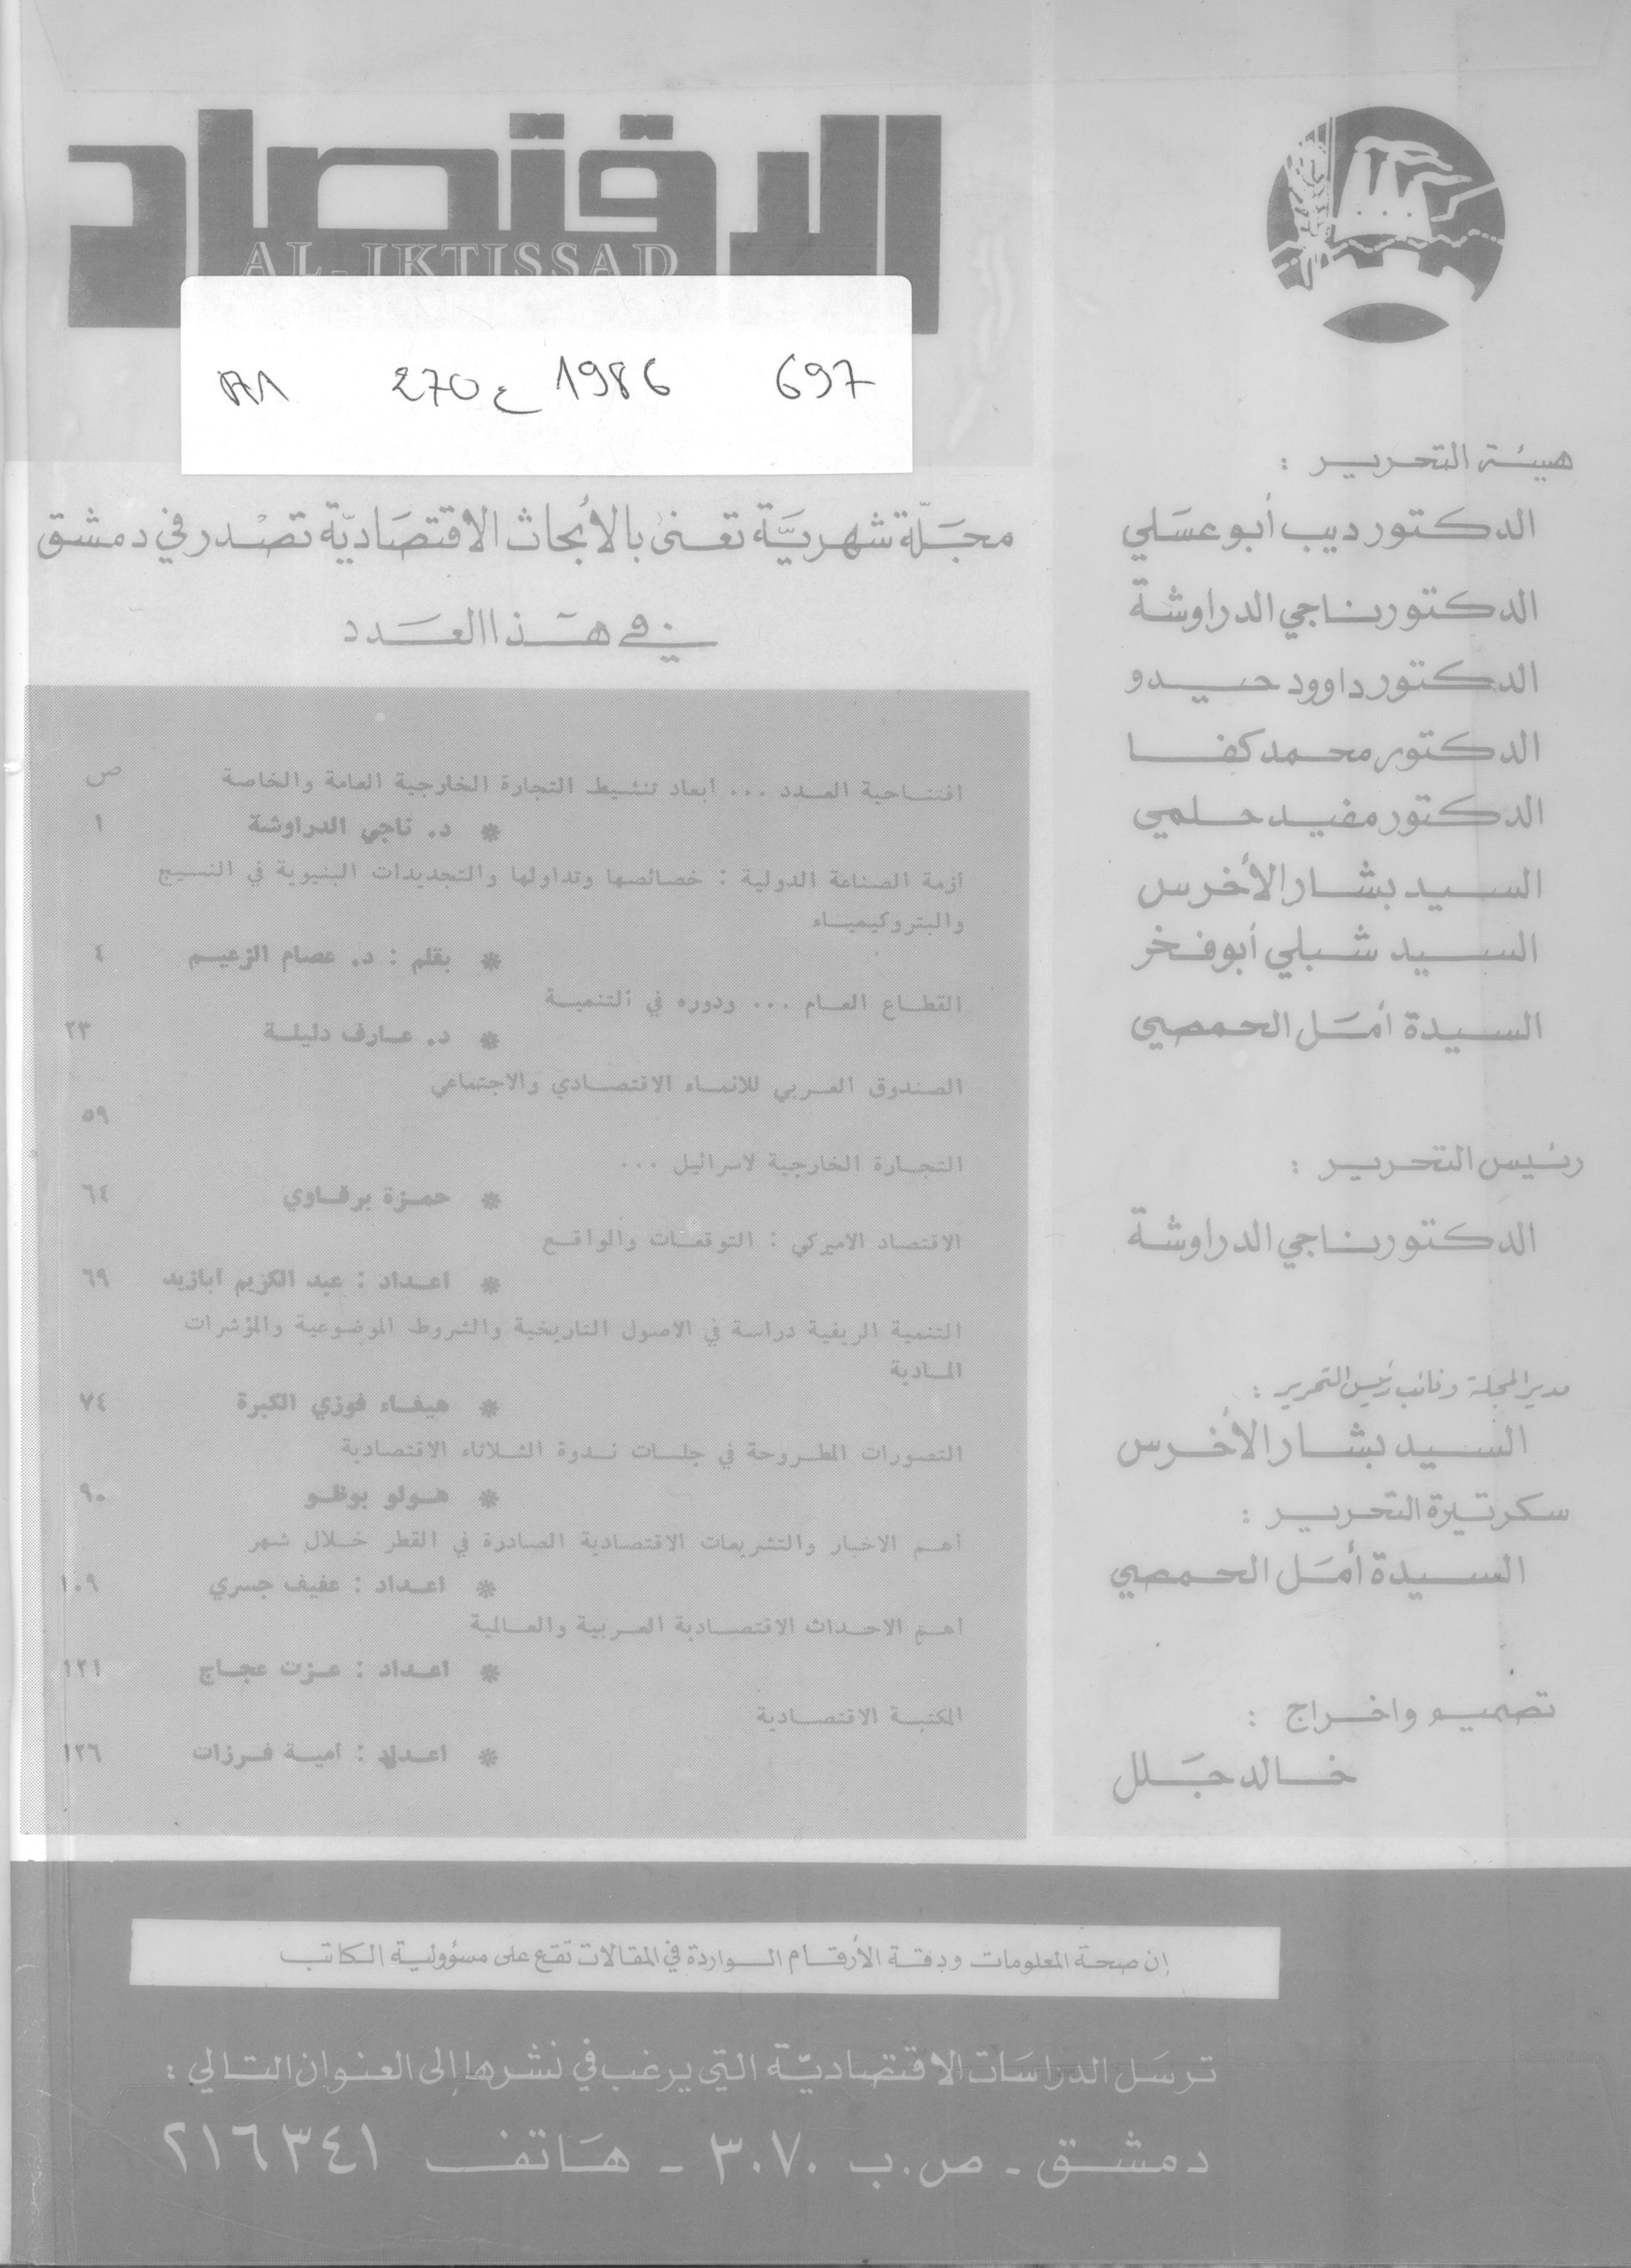 الاقتصاد
AL-IKTISSAD
697 1986 ع 270
مجلة شهرية تعنى بالأبحاث الاقتصادية تصدر في دمشق
في هذا العدد
ص
افتتاحية العدد ... أبعاد تنشيط التجارة الخارجية العامة والخاصة
* د. ناجي الدراوشة ١
أزمة الصناعة الدولية : خصائصها وتداولها والتجديدات البنيوية في النسيج
والبتروكيمياء
* بقلم : د. عصام الزعيم ٤
القطاع العام ... ودوره في التنمية
* د. عارف دليلة ٢٣
الصندوق العربي للانماء الاقتصادي والاجتماعي
٥٩
التجارة الخارجية لاسرائيل ...
* حمزة برقاوي ٦٤
الاقتصاد الاميركي : التوقعات والواقع
* اعداد : عبد الكريم ابازيد ٦٩
التنمية الريفية دراسة في الاصول التاريخية والشروط الموضوعية والمؤشرات
المادية
* هيفاء فوزي الكبرة ٧٤
التصورات المطروحة في جلسات ندوة الثلاثاء الاقتصادية
* هولو بوظو ٩٠
أهم الاخبار والتشريعات الاقتصادية الصادرة في القطر خلال شهر
* اعداد : عفيف جسري ١٠٩
أهم الاحداث الاقتصادية العربية والعالمية
* اعداد : عزت عجاج ١٢١
المكتبة الاقتصادية
* اعداد : أمية فرزات ١٢٦
هيئة التحرير :
الدكتور ديب أبو عسلي
الدكتور ناجي الدراوشة
الدكتور داوود حيدو
الدكتور محمد كفا
الدكتور مفيد حلمي
السيد بشار الأخرس
السيد شبلي أبو فخر
السيدة أمل الحمصي
رئيس التحرير :
الدكتور ناجي الدراوشة
مدير المجلة ونائب رئيس التحرير :
السيد بشار الأخرس
سكرتيرة التحرير :
السيدة أمل الحمصي
تصميم واخراج :
خالد جلل
إن صحة المعلومات ودقة الأرقام الواردة في المقالات تقع على مسؤولية الكاتب
ترسل الدراسات الاقتصادية التي يرغب في نشرها إلى العنوان التالي :
دمشق - ص.ب ٣٠٧٠ - هاتف ٢١٦٣٤١